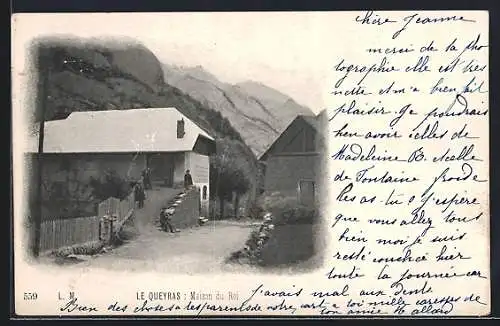 Chère Jeanne
merci de ta pho
tographie elle est très
nette et m'a bien fait
plaisir. Je voudrais
bien avoir celles de
Madeleine B. Noelle
de Fontaine
As-tu J'espère
que vous allez tous
bien moi je suis
restée couchée hier
toute la journée car
j'avais mal aux dents
559 L. M. LE QUEYRAS : Maison du Roi
Bien des choses à tes parents de notre part à toi mille caresses de
ton amie M Allard